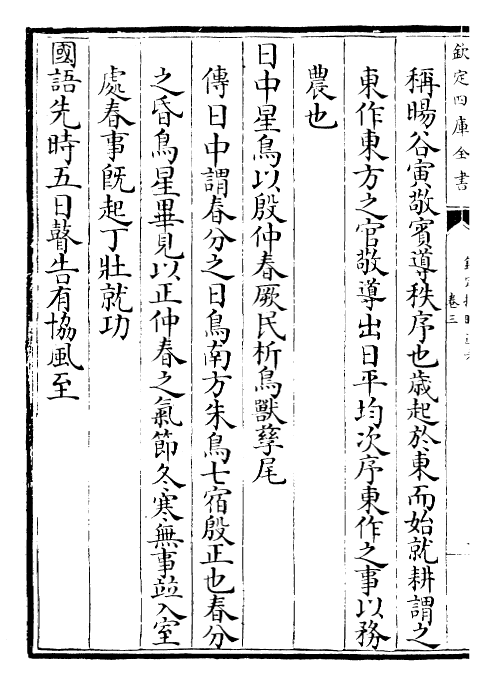 欽定四庫全書
卷三
稱暘谷寅敬賓導秩序也歳起於東而始就耕謂之
東作東方之官敬導出日平均次序東作之事以務
農也
日中星鳥以殷仲春厥民析鳥獸孳尾
傳日中謂春分之日鳥南方朱鳥七宿殷正也春分
之昏鳥星畢見以正仲春之氣節冬寒無事並入室
處春事既起丁壯就功
國語先時五日瞽告有協風至